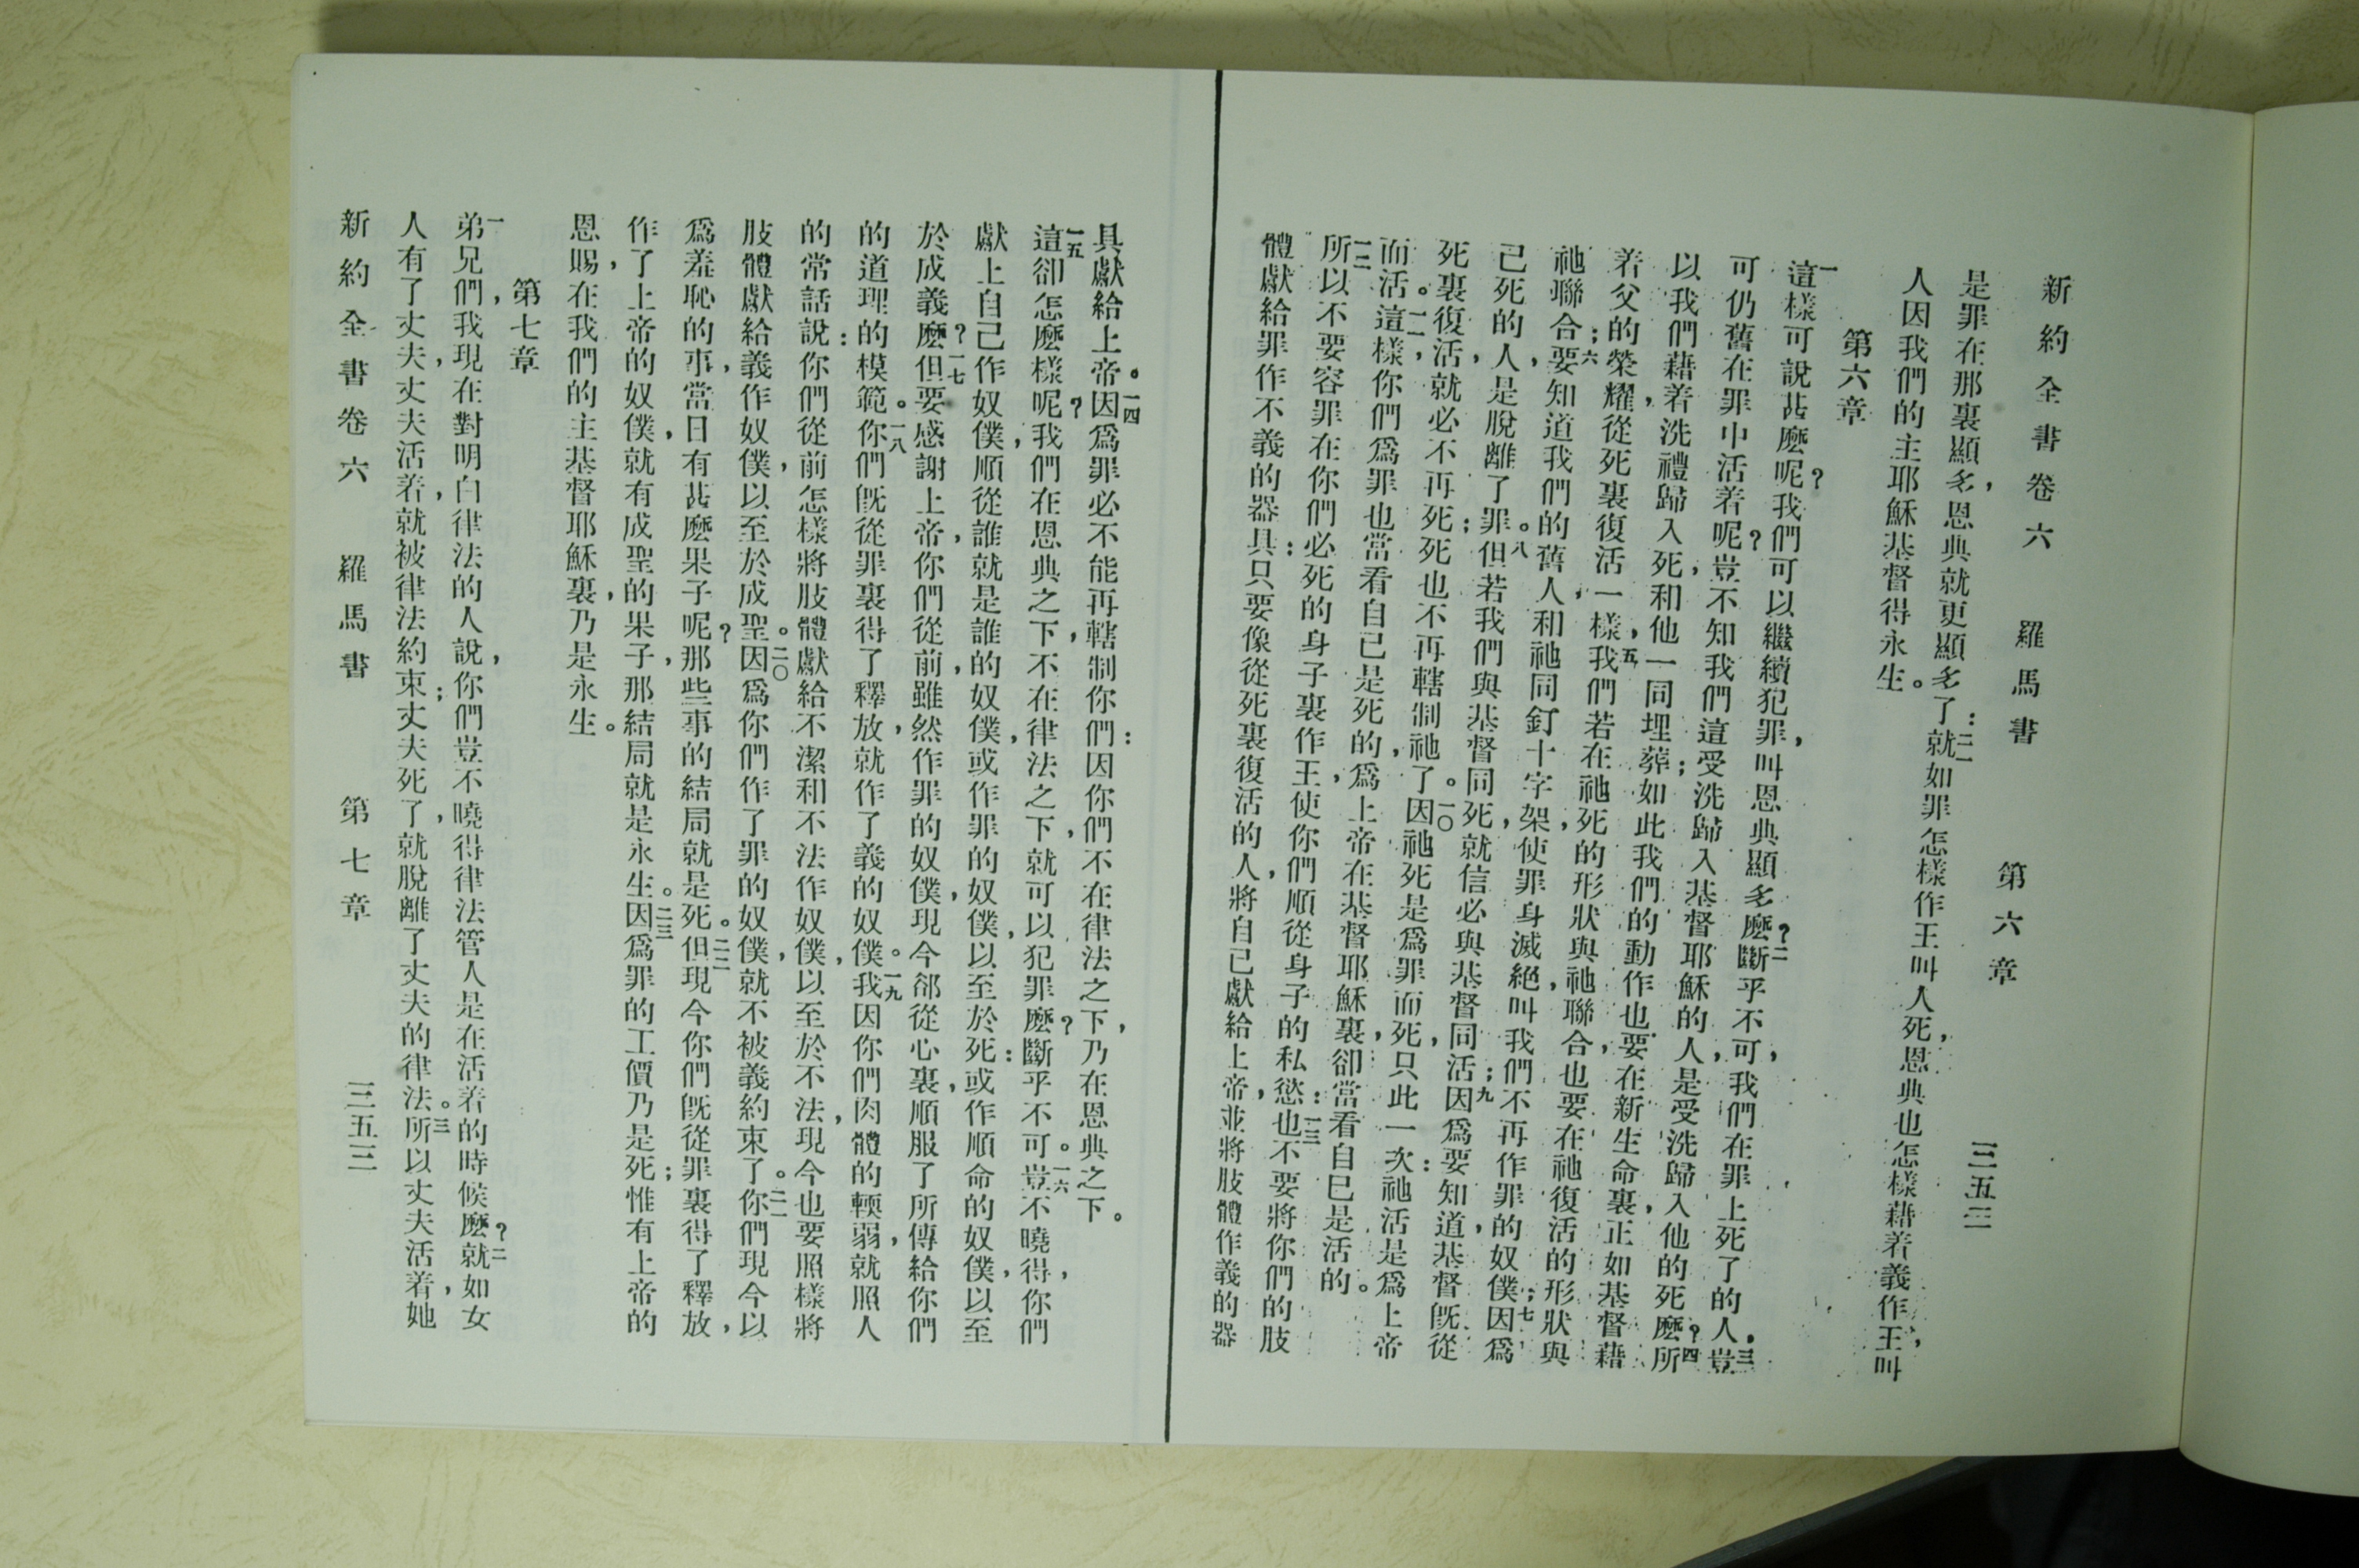 新約全書卷六 羅馬書 第六章 三五三
是罪在那裏顯多，恩典就更顯多了：二一就如罪怎樣作王叫人死，恩典也怎樣藉着義作王，叫
人因我們的主耶穌基督得永生。
第六章
一這樣可說甚麼呢？我們可以繼續犯罪，叫恩典顯多麼？二斷乎不可，我們在罪上死了的人，豈
可仍舊在罪中活着呢？三豈不知我們這受洗歸入基督耶穌的人，是受洗歸入他的死麼？四所
以我們藉着洗禮歸入死，和他一同埋葬；如此我們的動作也要在新生命裏，正如基督藉
着父的榮耀，從死裏復活一樣，五我們若在祂死的形狀與祂聯合，也要在祂復活的形狀與
祂聯合；六要知道我們的舊人，和祂同釘十字架，使罪身滅絕，叫我們不再作罪的奴僕；七因爲
已死的人，是脫離了罪。八但若我們與基督同死，就信必與基督同活；九因爲要知道基督既從
死裏復活，就必不再死；死也不再轄制祂了。一〇因祂死是爲罪而死，只此一次：祂活是爲上帝
而活。一一這樣，你們爲罪也當看自己是死的，爲上帝在基督耶穌裏，卻當看自己是活的。
一二所以不要容罪在你們必死的身子裏作王，使你們順從身子的私慾：一三也不要將你們的肢
體獻給罪作不義的器具：只要像從死裏復活的人，將自己獻給上帝，並將肢體作義的器
具獻給上帝。一四因爲罪必不能再轄制你們：因你們不在律法之下，乃在恩典之下。
一五這卻怎麼樣呢？我們在恩典之下，不在律法之下，就可以犯罪麼？斷乎不可。一六豈不曉得，你們
獻上自己作奴僕，順從誰就是誰的奴僕，或作罪的奴僕，以至於死：或作順命的奴僕，以至
於成義麼？一七但要感謝上帝，你們從前，雖然作罪的奴僕，現今卻從心裏，順服了所傳給你們
的道理的模範。一八你們既從罪裏得了釋放，就作了義的奴僕。一九我因你們肉體的輭弱，就照人
的常話說：你們從前怎樣將肢體獻給不潔和不法作奴僕，以至於不法，現今也要照樣將
肢體獻給義作奴僕，以至於成聖。二〇因爲你們作了罪的奴僕，就不被義約束了。二一你們現今以
爲羞恥的事，當日有甚麼果子呢？那些事的結局就是死。二二但現今你們既從罪裏得了釋放，
作了上帝的奴僕，就有成聖的果子，那結局就是永生。二三因爲罪的工價乃是死；惟有上帝的
恩賜，在我們的主基督耶穌裏，乃是永生。
第七章
一弟兄們，我現在對明白律法的人說，你們豈不曉得律法管人是在活着的時候麼？二就如女
人有了丈夫，丈夫活着，就被律法約束；丈夫死了，就脫離了丈夫的律法。三所以丈夫活着，她
新約全書卷六 羅馬書 第七章 三五三